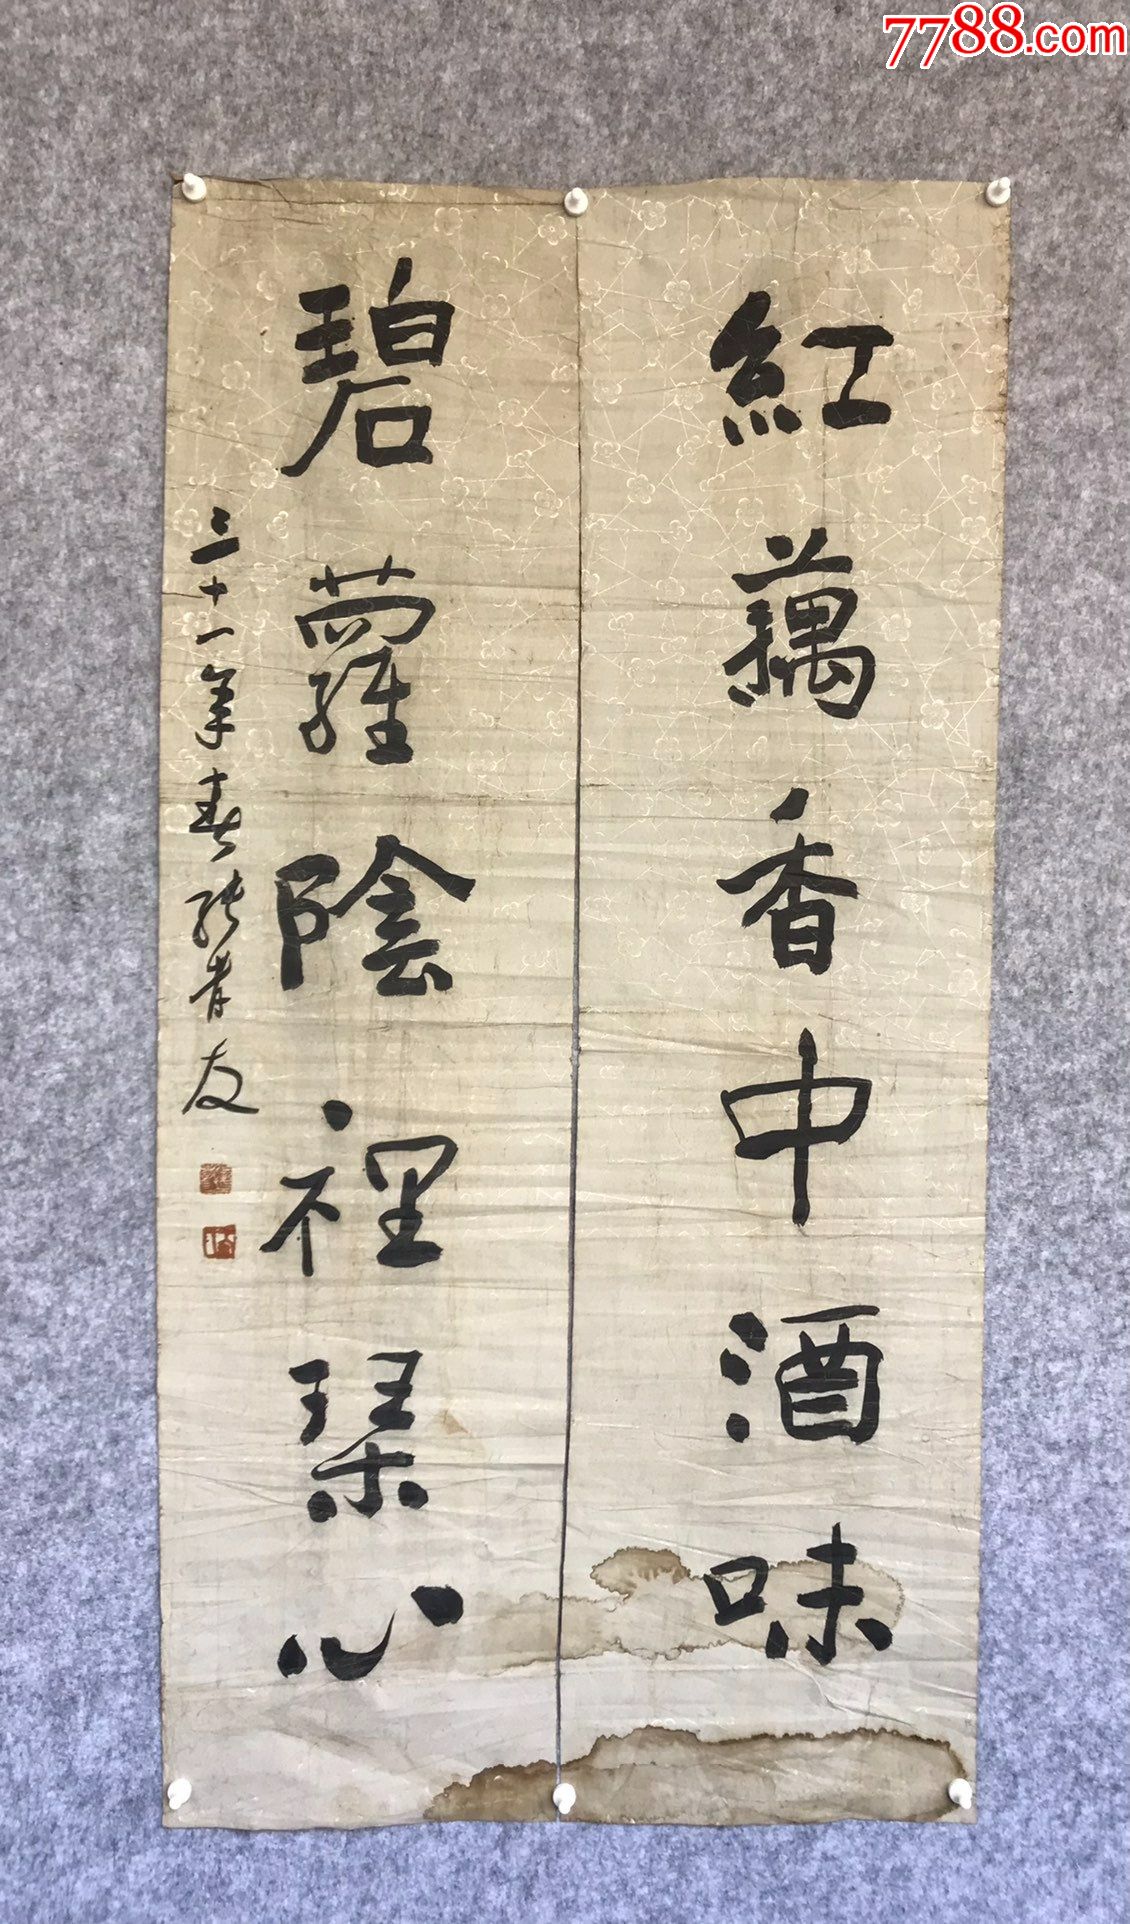 7788.com
紅藕香中酒味
碧蘿陰裡琹心
三十一年春張青友